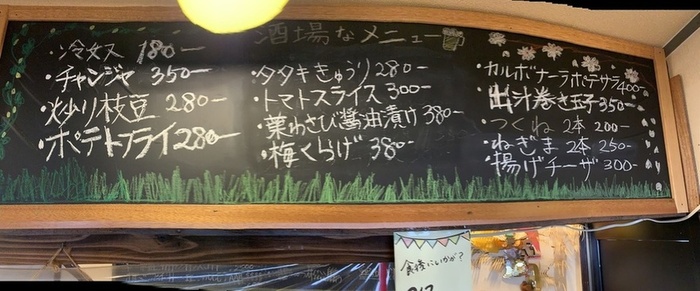 酒場なメニュー
・冷奴 180-
・チャンジャ 350-
・炒り枝豆 280-
・ポテトフライ 280-
・タタキきゅうり 280-
・トマトスライス 300-
・葉わさび醤油漬け 380-
・梅くらげ 380-
・カルボナーラポテサラ 400-
・出汁巻き玉子 350-
・つくね 2本 200-
・ねぎま 2本 250-
・揚げチーザ 300-
食後にいかが?